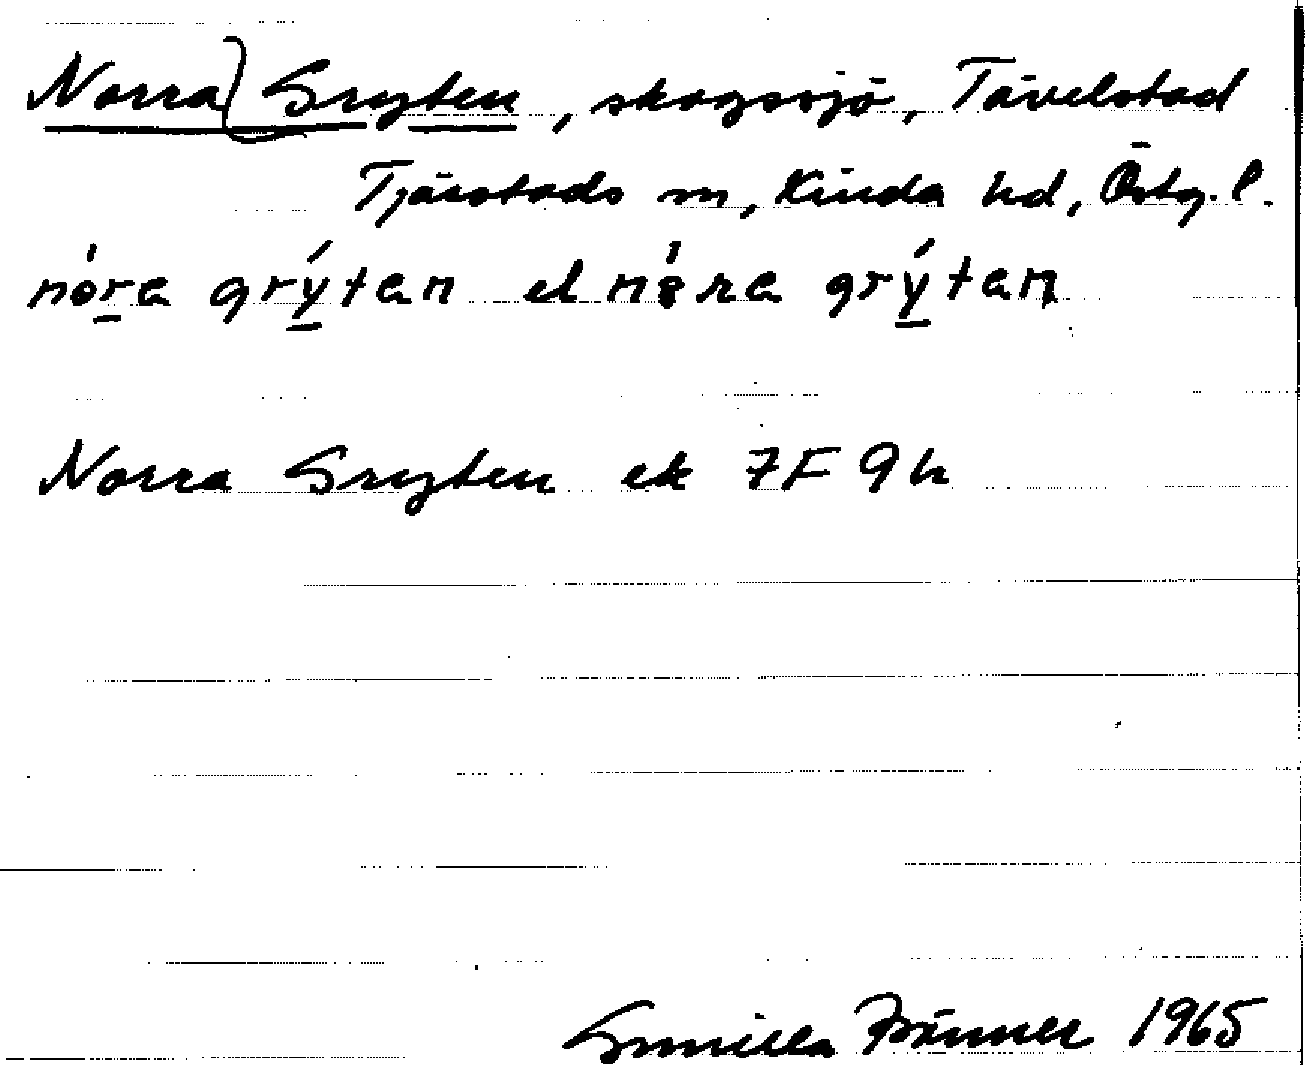 Norra Gryten, skogssjö, Tävelstad
Tjärstads sn, Kinda hd, Östg. l.
nóra grýtan el nóra grýtan
Norra Gryten ek 7F 9h
Gunilla 1965